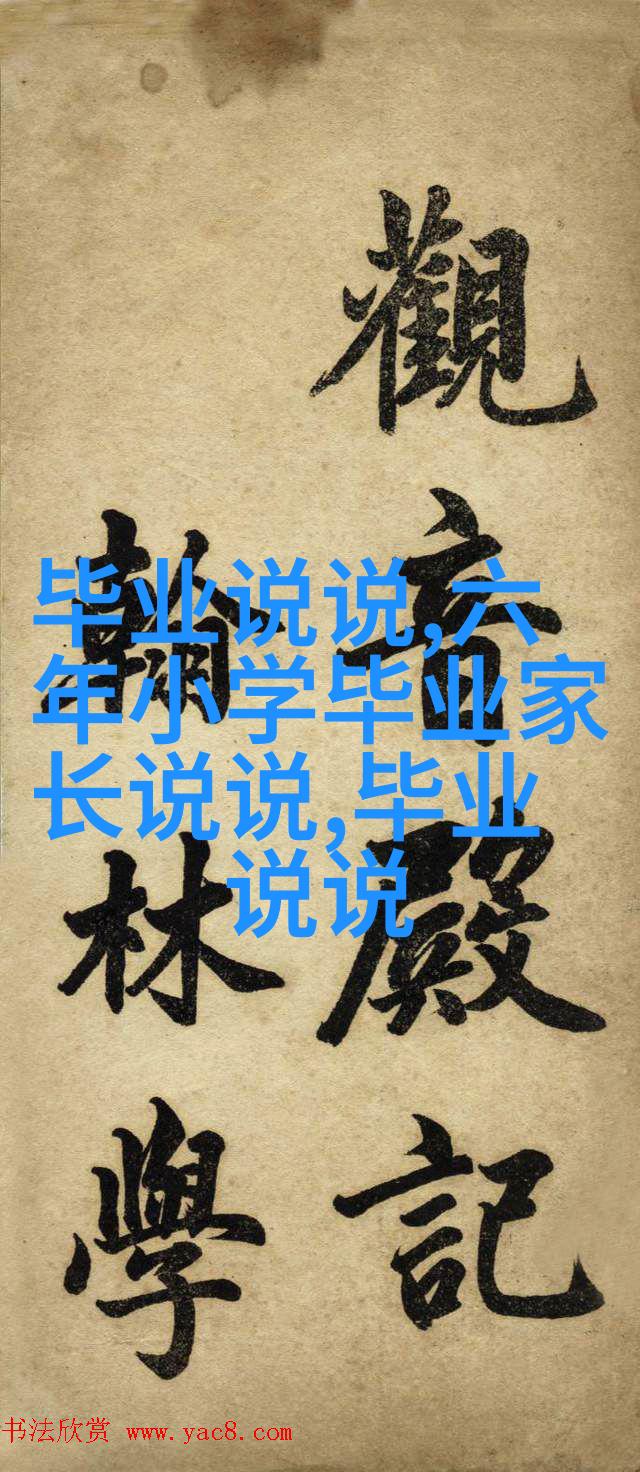 觀音殿記
翰林學
毕业说说,六
年小学毕业家
长说说,毕业
说说
书法欣赏 www.yac8.com